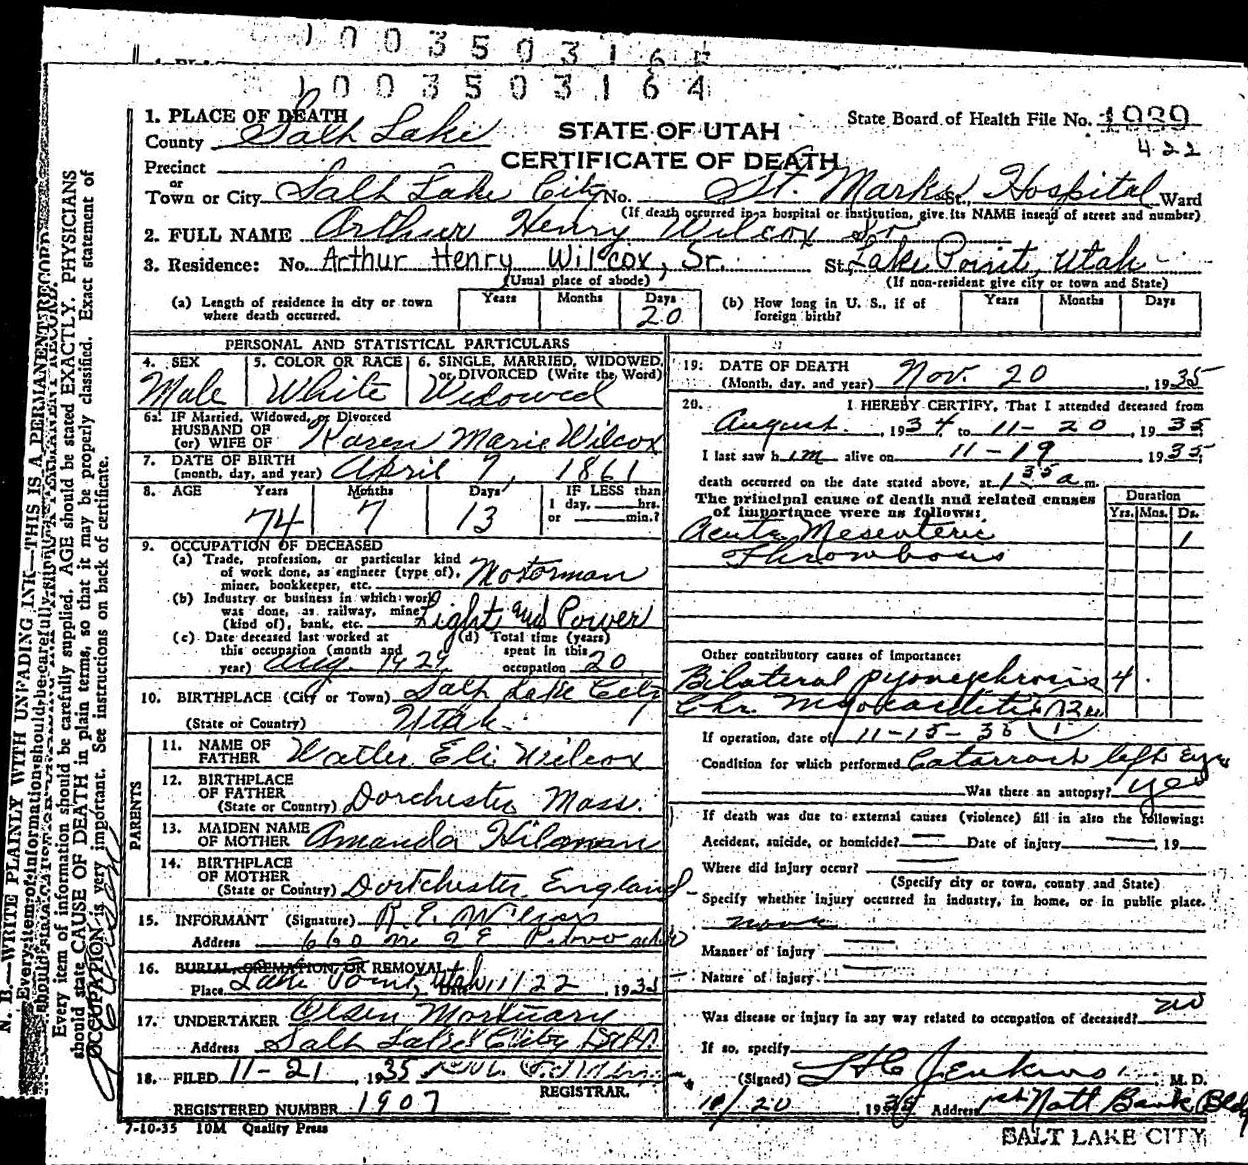 1003503164
1. PLACE OF DEATH
County Salt Lake
STATE OF UTAH
CERTIFICATE OF DEATH
State Board of Health File No. 1989
422
Precinct
or
Town or City Salt Lake City No. St. Marks St., Hospital Ward
(If death occurred in a hospital or institution, give its NAME instead of street and number)
2. FULL NAME Arthur Henry Wilcox Sr
3. Residence: No. Arthur Henry Wilcox, Sr. St. Lake Point, Utah
(Usual place of abode) (If non-resident give city or town and State)
(a) Length of residence in city or town where death occurred. Years Months Days 20
(b) How long in U. S., if of foreign birth? Years Months Days
PERSONAL AND STATISTICAL PARTICULARS
4. SEX Male
5. COLOR OR RACE White
6. SINGLE, MARRIED, WIDOWED, or DIVORCED (Write the Word) Widowed
6a. IF Married, Widowed, or Divorced
HUSBAND OF
(or) WIFE OF Karen Marie Wilcox
7. DATE OF BIRTH
(month, day, and year) April 7, 1861
8. AGE Years Months Days IF LESS than
74 7 13 1 day, hrs.
or min.?
9. OCCUPATION OF DECEASED
(a) Trade, profession, or particular kind
of work done, as engineer (type of),
miner, bookkeeper, etc. Motorman
(b) Industry or business in which work
was done, as railway, mine
(kind of), bank, etc. Light and Power
(c) Date deceased last worked at
this occupation (month and
year) Aug. 1929
(d) Total time (years)
spent in this
occupation 20
10. BIRTHPLACE (City or Town) Salt Lake City
(State or Country) Utah
PARENTS
11. NAME OF
FATHER Walter Eli Wilcox
12. BIRTHPLACE
OF FATHER
(State or Country) Dorchester Mass.
13. MAIDEN NAME
OF MOTHER Amanda
14. BIRTHPLACE
OF MOTHER
(State or Country) Dortchester England
15. INFORMANT (Signature)
Address 660
16. BURIAL, CREMATION, OR REMOVAL
Place Lake Point, Utah Date 11/22, 1935
17. UNDERTAKER Olsen Mortuary
Address Salt Lake City Utah
18. FILED 11-21, 1935
REGISTRAR.
REGISTERED NUMBER 1907
7-10-35 10M Quality Press
19. DATE OF DEATH
(Month, day, and year) Nov. 20, 1935
20. I HEREBY CERTIFY, That I attended deceased from
August, 1934, to 11-20, 1935
I last saw him alive on 11-19 1935
death occurred on the date stated above, at 1 35 a m.
The principal cause of death and related causes
of importance were as follows:
Duration
Yrs. Mos. Ds.
Acute Mesenteric 1
Thrombosis
Other contributory causes of importance:
Bilateral pyonephrosis 4
Chr. Myocarditis
If operation, date of 11-15-35
Condition for which performed Catarract left Eye
Was there an autopsy? yes
If death was due to external causes (violence) fill in also the following:
Accident, suicide, or homicide? Date of injury, 19
Where did injury occur?
(Specify city or town, county and State)
Specify whether injury occurred in industry, in home, or in public place.
none
Manner of injury
Nature of injury
Was disease or injury in any way related to occupation of deceased? no
If so, specify
(Signed) Jenkins M. D.
10/20, 1935 Address 1st Natl Bank Bldg
SALT LAKE CITY
N. B.—WRITE PLAINLY WITH UNFADING INK—THIS IS A PERMANENT RECORD
Every item of information should be carefully supplied. AGE should be stated EXACTLY. PHYSICIANS
should state CAUSE OF DEATH in plain terms, so that it may be properly classified. Exact statement of
OCCUPATION is very important. See instructions on back of certificate.